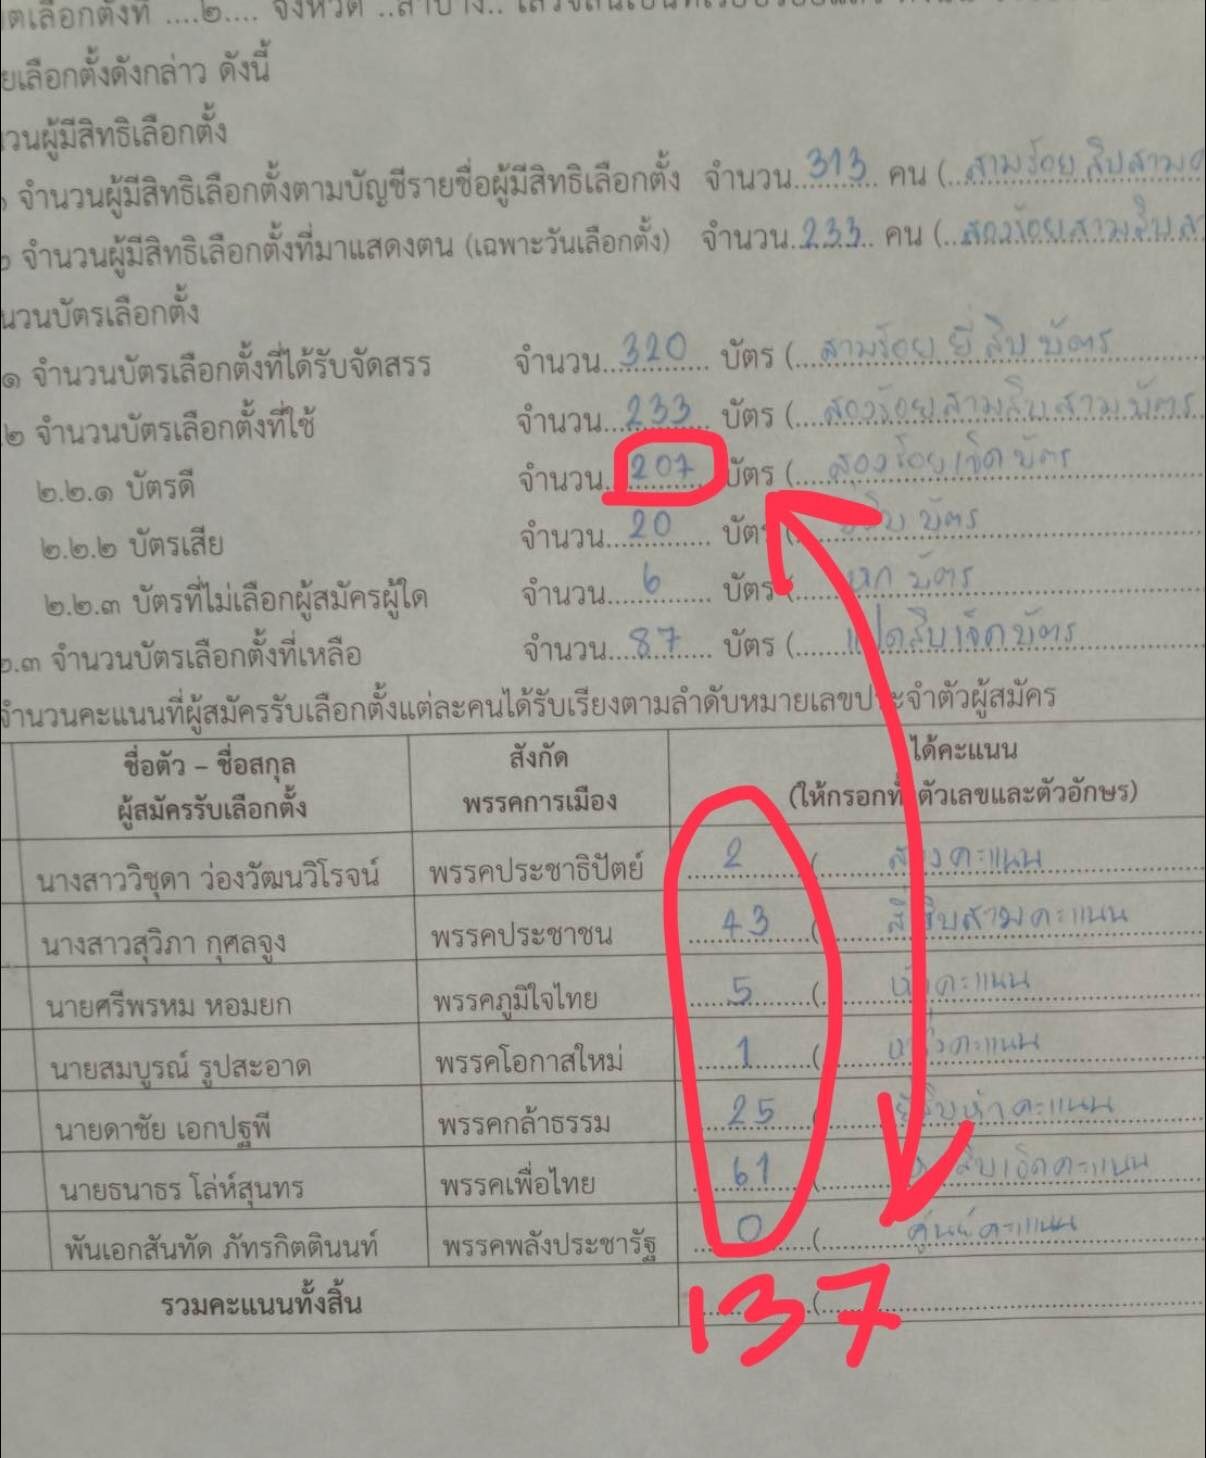 ตเลือกตั้งที่ ....๒.... จังหวัด ..ลำปาง..
ยเลือกตั้งดังกล่าว ดังนี้
วนผู้มีสิทธิเลือกตั้ง
จำนวนผู้มีสิทธิเลือกตั้งตามบัญชีรายชื่อผู้มีสิทธิเลือกตั้ง จำนวน..313.. คน (..สามร้อยสิบสาม
๒ จำนวนผู้มีสิทธิเลือกตั้งที่มาแสดงตน (เฉพาะวันเลือกตั้ง) จำนวน..233.. คน (..สองร้อยสามสิบสา
นวนบัตรเลือกตั้ง
๑ จำนวนบัตรเลือกตั้งที่ได้รับจัดสรร จำนวน..320.. บัตร (..สามร้อยยี่สิบบัตร
.๒ จำนวนบัตรเลือกตั้งที่ใช้ จำนวน..233.. บัตร (..สองร้อยสามสิบสามบัตร
๒.๒.๑ บัตรดี จำนวน..207.. บัตร (..สองร้อยเจ็ดบัตร
๒.๒.๒ บัตรเสีย จำนวน..20.. บัตร (..ยี่สิบบัตร
๒.๒.๓ บัตรที่ไม่เลือกผู้สมัครผู้ใด จำนวน..6.. บัตร (..หกบัตร
๒.๓ จำนวนบัตรเลือกตั้งที่เหลือ จำนวน..87.. บัตร (..แปดสิบเจ็ดบัตร
จำนวนคะแนนที่ผู้สมัครรับเลือกตั้งแต่ละคนได้รับเรียงตามลำดับหมายเลขประจำตัวผู้สมัคร
ชื่อตัว – ชื่อสกุล
ผู้สมัครรับเลือกตั้ง
สังกัด
พรรคการเมือง
ได้คะแนน
(ให้กรอกทั้งตัวเลขและตัวอักษร)
นางสาววิชุดา ว่องวัฒนวิโรจน์ พรรคประชาธิปัตย์ 2 ( สองคะแนน
นางสาวสุวิภา กุศลจูง พรรคประชาชน 43 ( สี่สิบสามคะแนน
นายศรีพรหม หอมยก พรรคภูมิใจไทย 5 ( ห้าคะแนน
นายสมบูรณ์ รูปสะอาด พรรคโอกาสใหม่ 1 ( หนึ่งคะแนน
นายดาชัย เอกปฐพี พรรคกล้าธรรม 25 ( ยี่สิบห้าคะแนน
นายธนาธร โล่ห์สุนทร พรรคเพื่อไทย 61 ( หกสิบเอ็ดคะแนน
พันเอกสันทัด ภัทรกิตตินนท์ พรรคพลังประชารัฐ 0 ( ศูนย์คะแนน
รวมคะแนนทั้งสิ้น 137 (